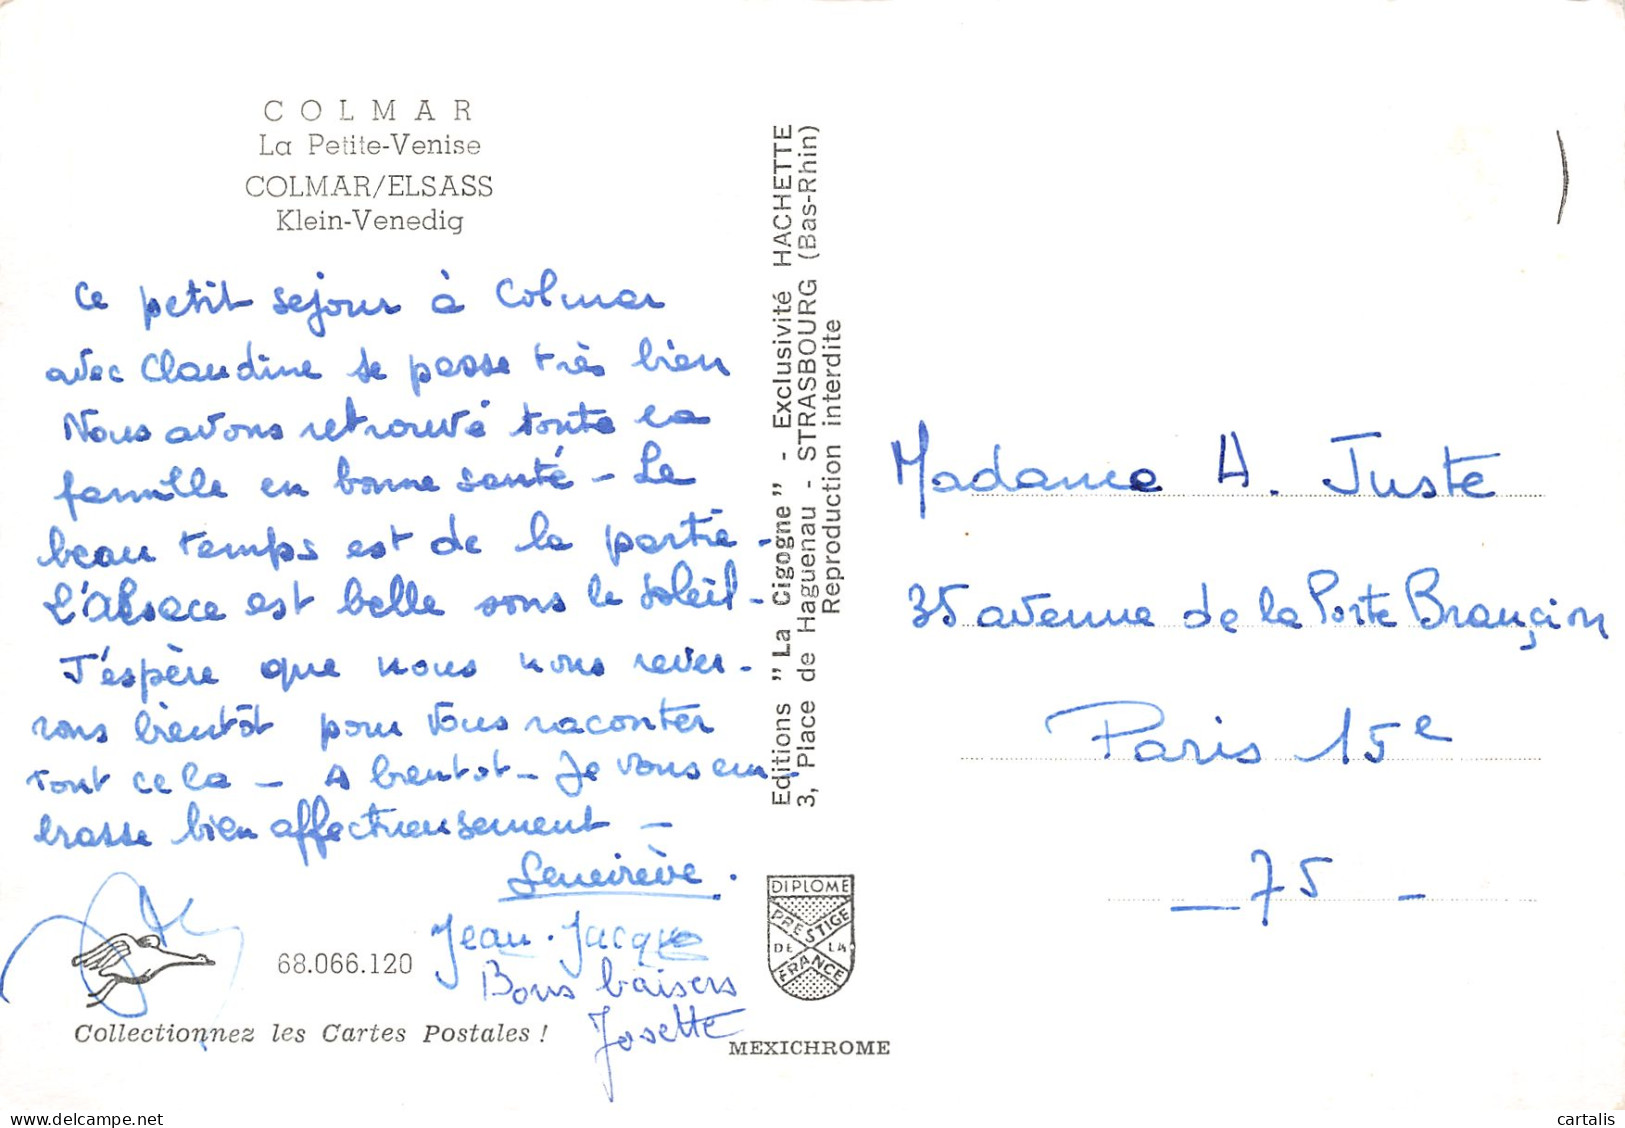 COLMAR
La Petite-Venise
COLMAR/ELSASS
Klein-Venedig
Ce petit sejour à Colmar
avec Claudine se passe très bien
Nous avons retrouvé toute la
famille en bonne santé - Le
beau temps est de la partie -
L'Alsace est belle sous le soleil -
J'éspère que nous nous rever-
rons bientôt pour vous raconter
tout cela - A bientot - Je vous em-
brasse bien affectueusement -
Geneviève.
Jean-Jacques
Bons baisers
Josette
68.066.120
Collectionnez les Cartes Postales !
Editions "La Cigogne" - Exclusivité HACHETTE
3, Place de Haguenau - STRASBOURG (Bas-Rhin)
Reproduction interdite
DIPLOME
PRESTIGE
DE LA
FRANCE
MEXICHROME
Madame A. Juste
35 avenue de la Porte Brançion
Paris 15e
- 75 -
delcampe.net
cartalis